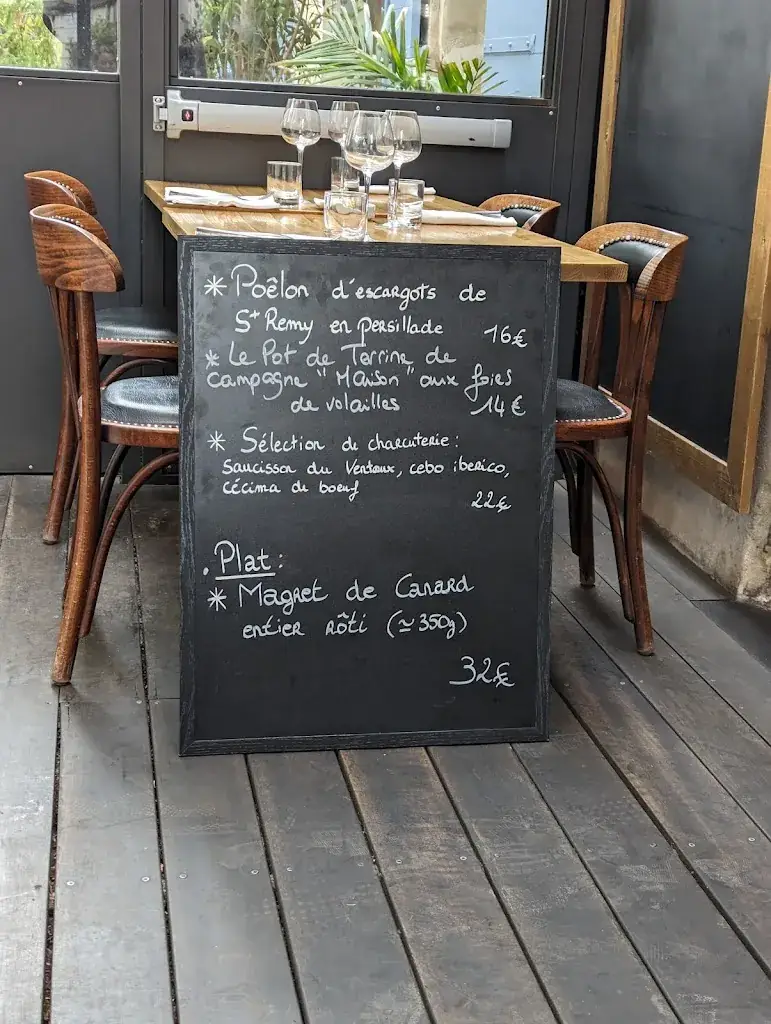 * Poêlon d'escargots de
St Remy en persillade 16€
* Le Pot de Terrine de
campagne "Maison" aux foies
de volailles 14€
* Sélection de charcuterie :
Saucisson du Ventoux, cebo iberico,
cécima de boeuf
22€
. Plat :
* Magret de Canard
entier rôti (≃ 350g)
32€